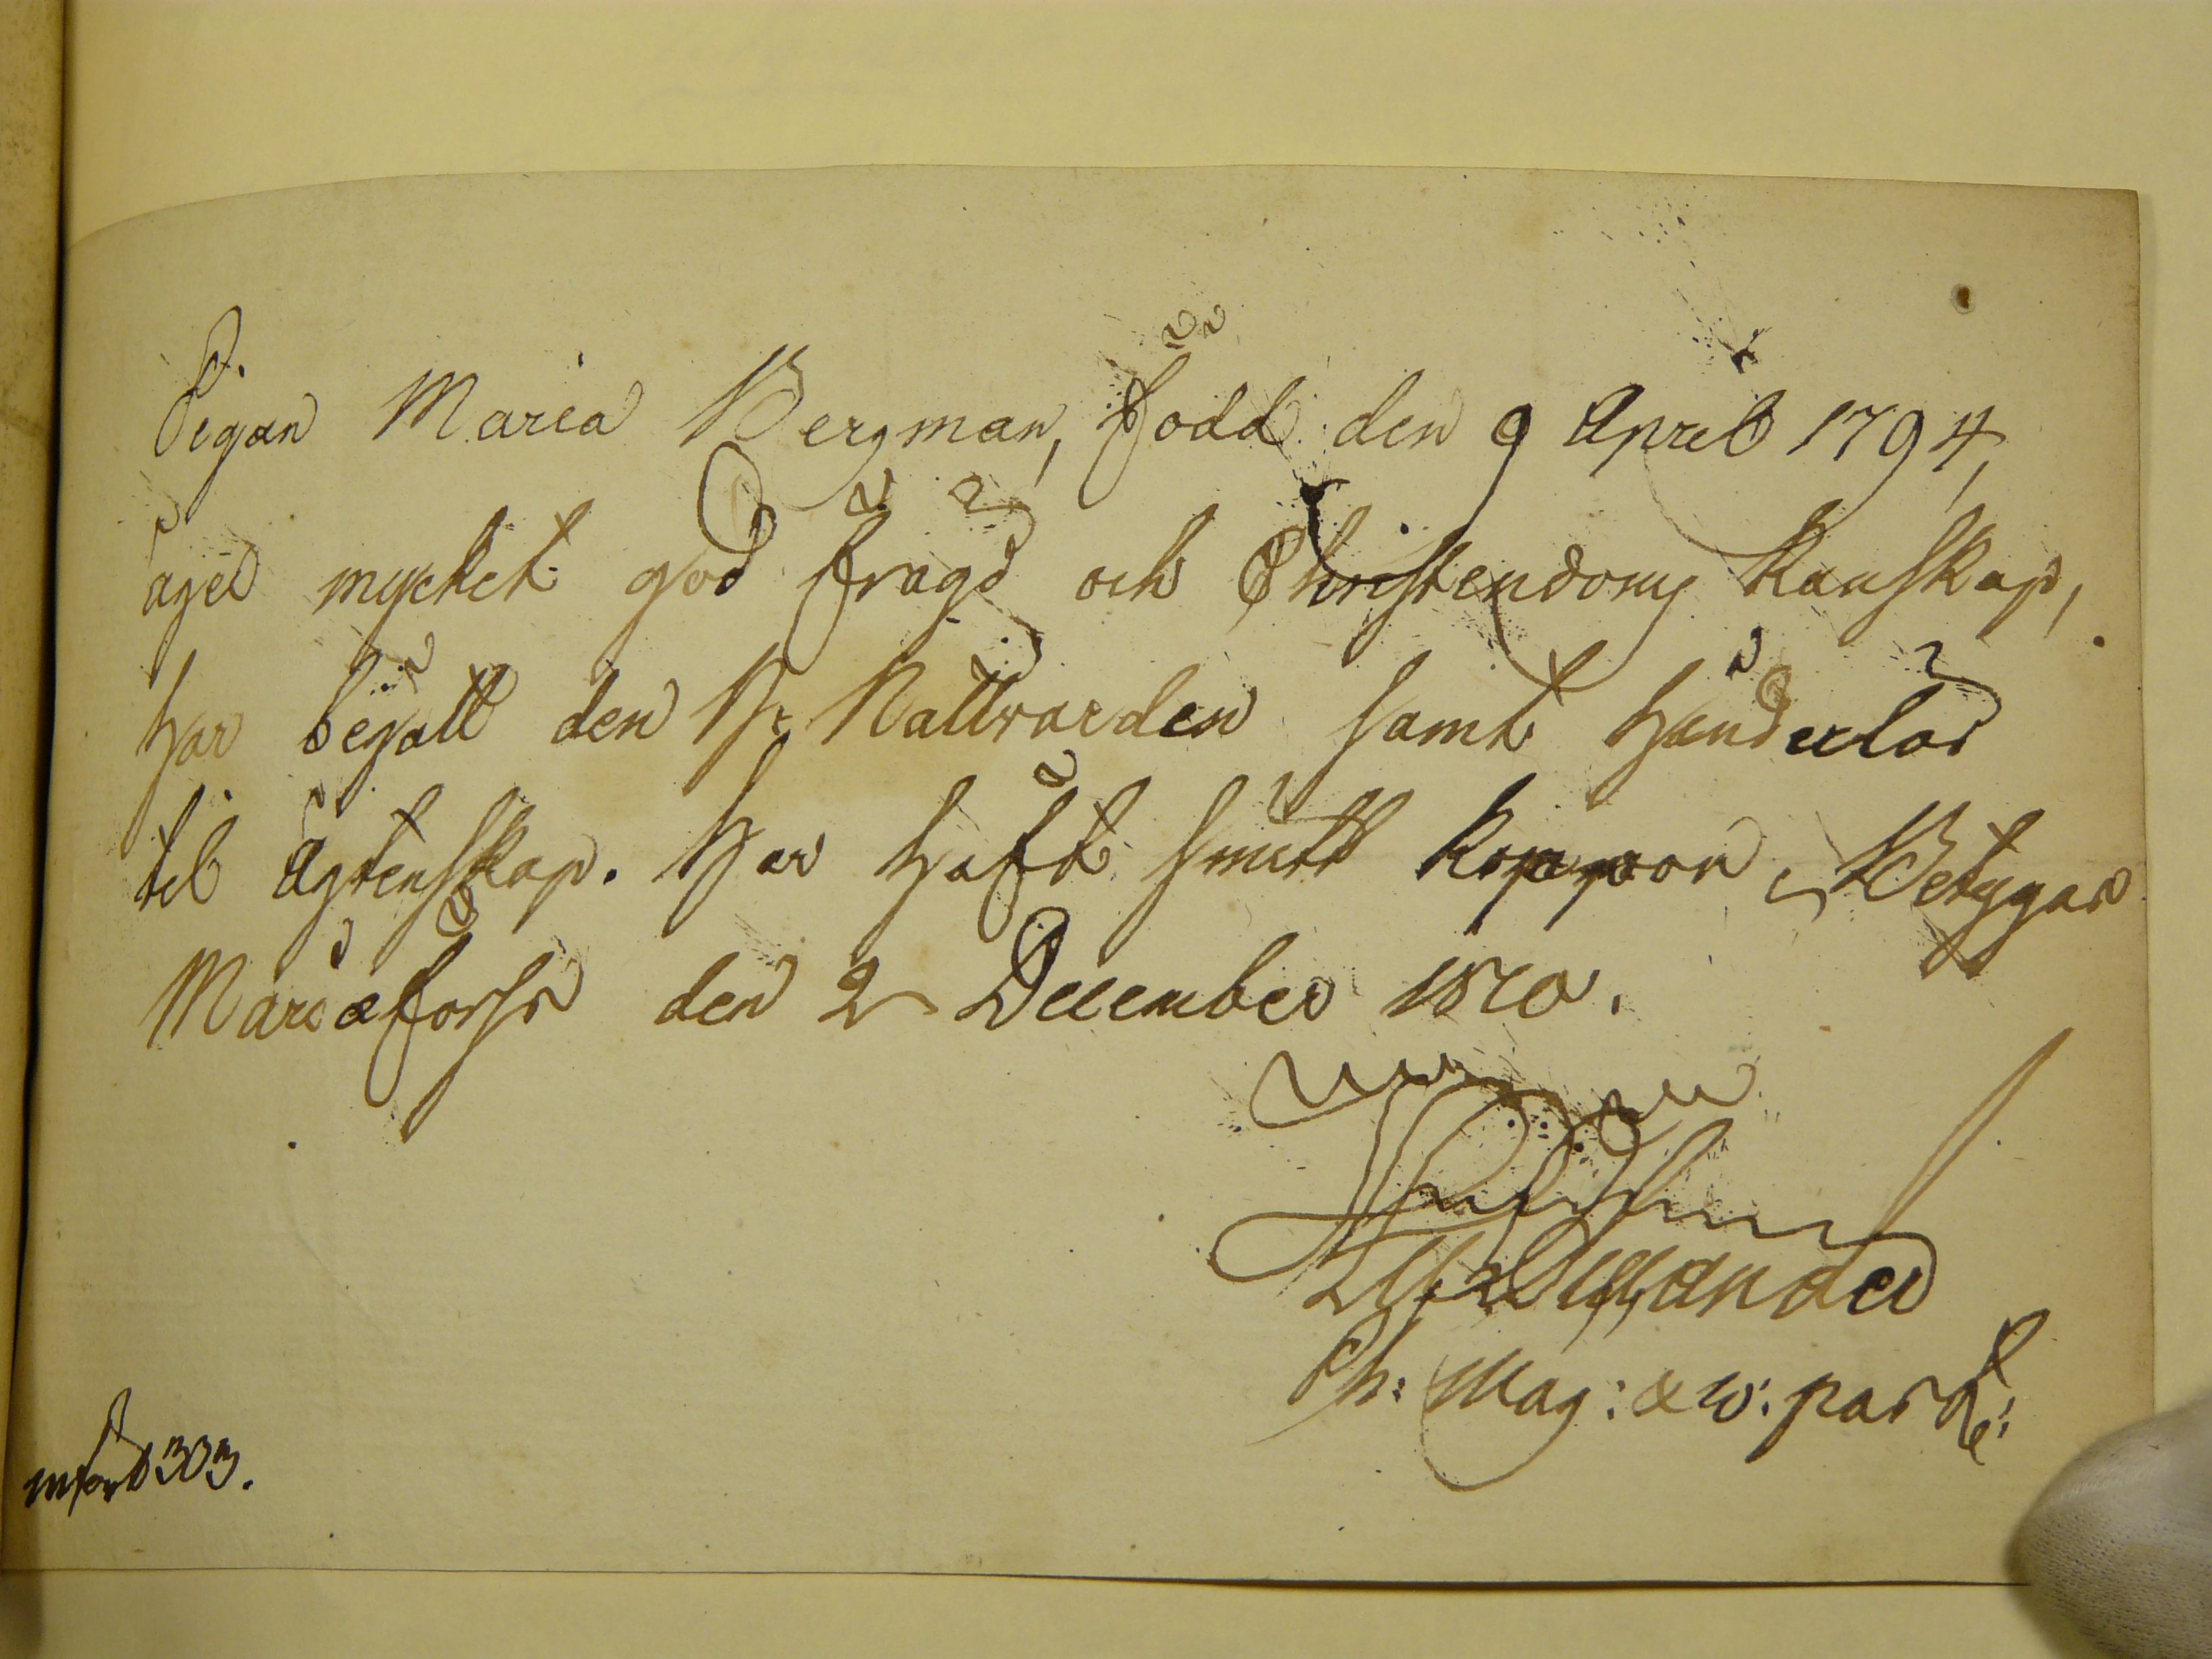 Pigan Maria Bergman, född den 9 April 1794,
äger mycket god frägd och Christendoms kunskap,
har begått den H. Nattvarden samt är hinderlös
til Ägtenskap. Har haft smitt koppor, Betygar
Mariæfors den 2 December 1810.
Ph: Mag: & v: past:
infört 303.